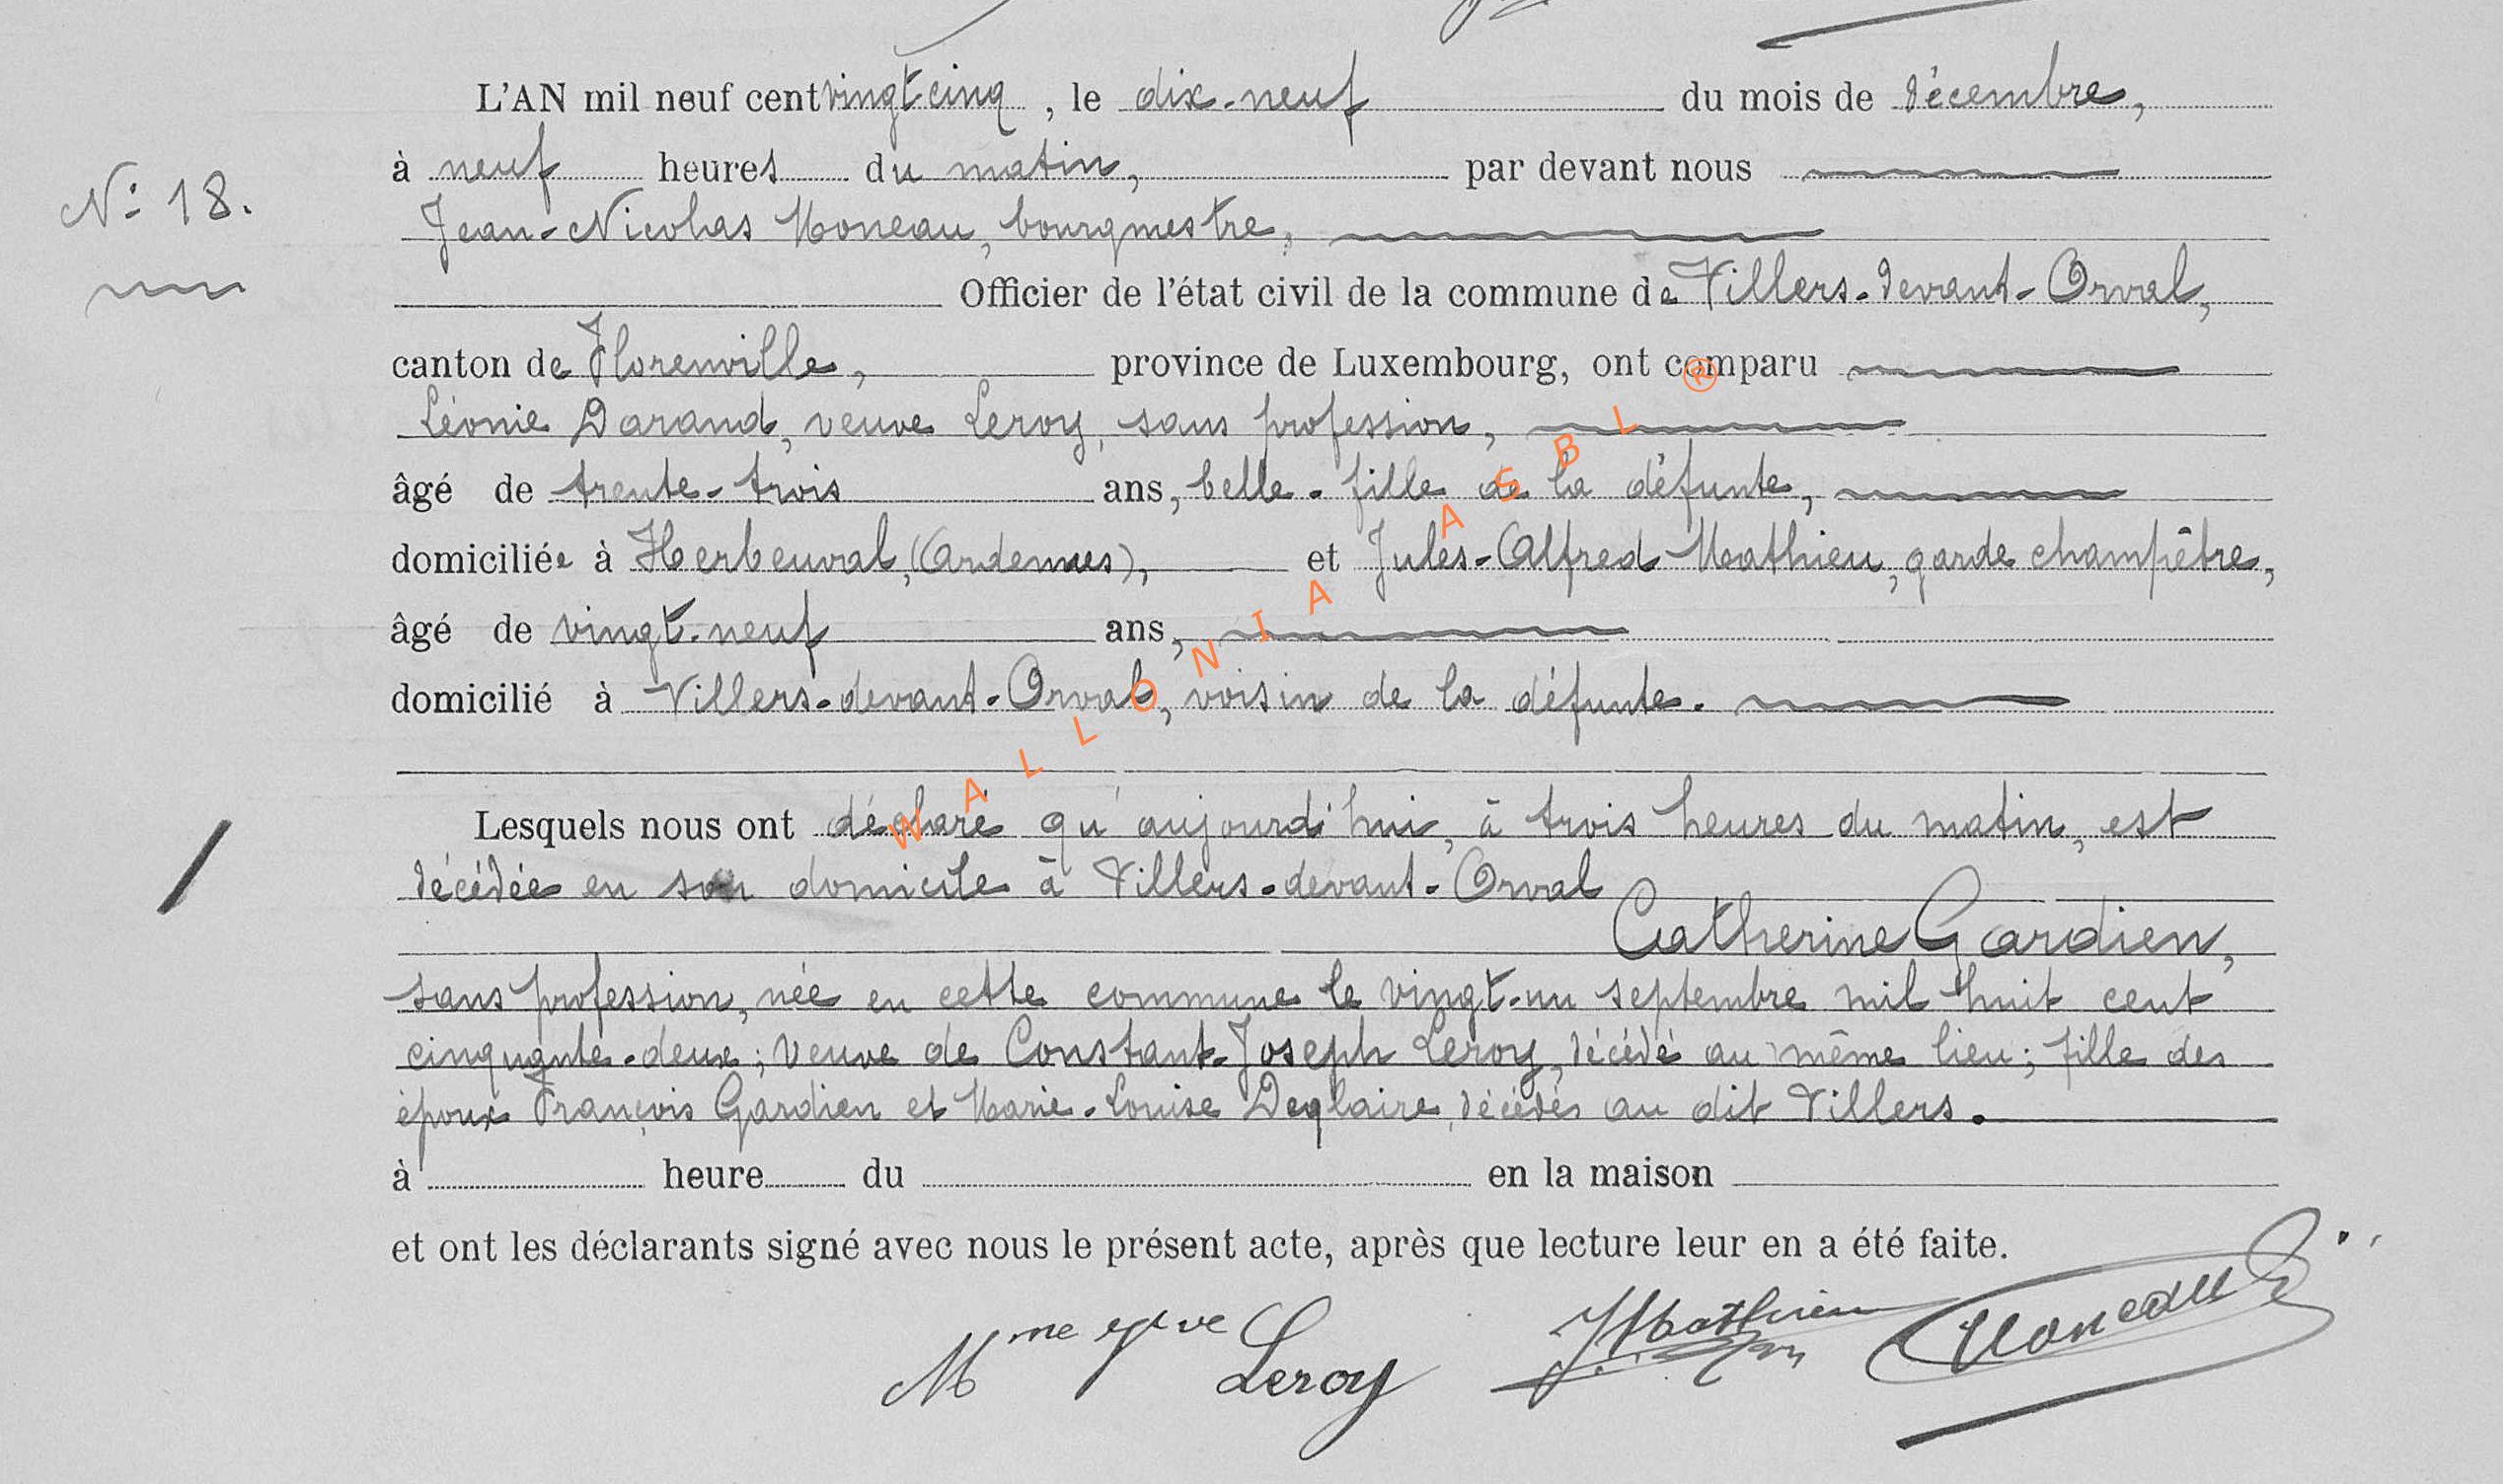 L'AN mil neuf cent vingt-cinq, le dix-neuf du mois de décembre,
à neuf heures du matin, par devant nous
N° 18.
Jean-Nicolas Moneau, bourgmestre,
Officier de l'état civil de la commune de Villers-devant-Orval,
canton de Florenville, province de Luxembourg, ont comparu
Léonie Darand, veuve Leroy, sans profession,
âgé de trente-trois ans, belle-fille de la défunte,
domiciliée à Herbeuval, (Ardennes), et Jules-Alfred Mathieu, garde champêtre,
âgé de vingt-neuf ans,
domicilié à Villers-devant-Orval, voisin de la défunte.
Lesquels nous ont déclaré qu'aujourd'hui, à trois heures du matin, est
décédée en son domicile à Villers-devant-Orval
Catherine Gardien,
sans profession, née en cette commune le vingt-un septembre mil huit cent
cinquante-deux; veuve de Constant-Joseph Leroy, décédé au même lieu; fille des
époux François Gardien et Marie-Louise Deglaire, décédés au dit Villers.
à heure du en la maison
et ont les déclarants signé avec nous le présent acte, après que lecture leur en a été faite.
Mme Vve Leroy JMathieu Moneau
WALLONIA ASBL ®